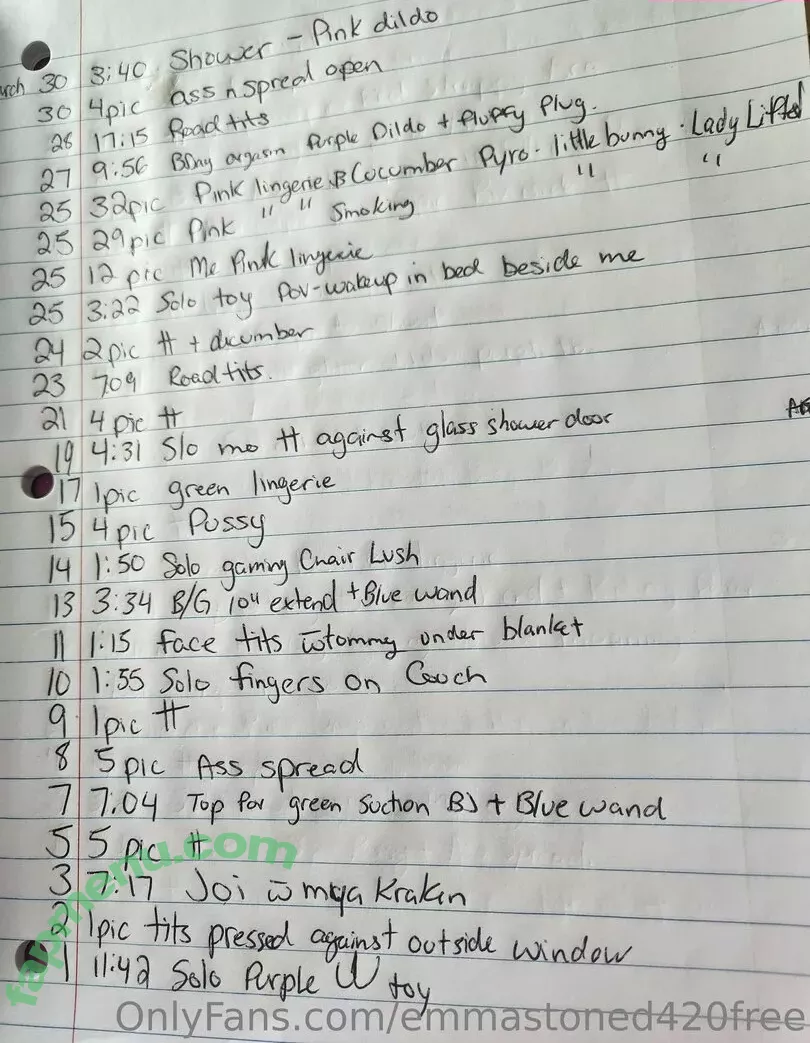 rch 30 3:40 Shower - Pink dildo
30 4pic ass n spread open
28 17:15 Road tits
27 9:56 BDay orgasm Purple Dildo + fluffy Plug.
25 32pic Pink lingerie Cucumber Pyro. little bunny. Lady Lifted
25 29pic Pink " " Smoking " "
25 12 pic Me Pink lingerie
25 3:22 Solo toy Pov-wakeup in bed beside me
24 2pic tt +
23 7:09 Road tits.
21 4 pic tt
19 4:31 Slo mo tt against glass shower door
17 1pic green lingerie
15 4pic Pussy
14 1:50 Solo gaming Chair Lush
13 3:34 B/G 10" extend + Blue wand
11 1:15 face tits w tommy under blanket
10 1:55 Solo fingers on Couch
9 1pic tt
8 5pic Ass spread
7 7:04 Top Pov green suction BJ + Blue wand
5 5 pic tt
3 7:17 Joi w mya Kraken
2 1pic tits pressed against outside window
1 11:42 Solo Purple W toy
fapmenu.com
OnlyFans.com/emmastoned420free